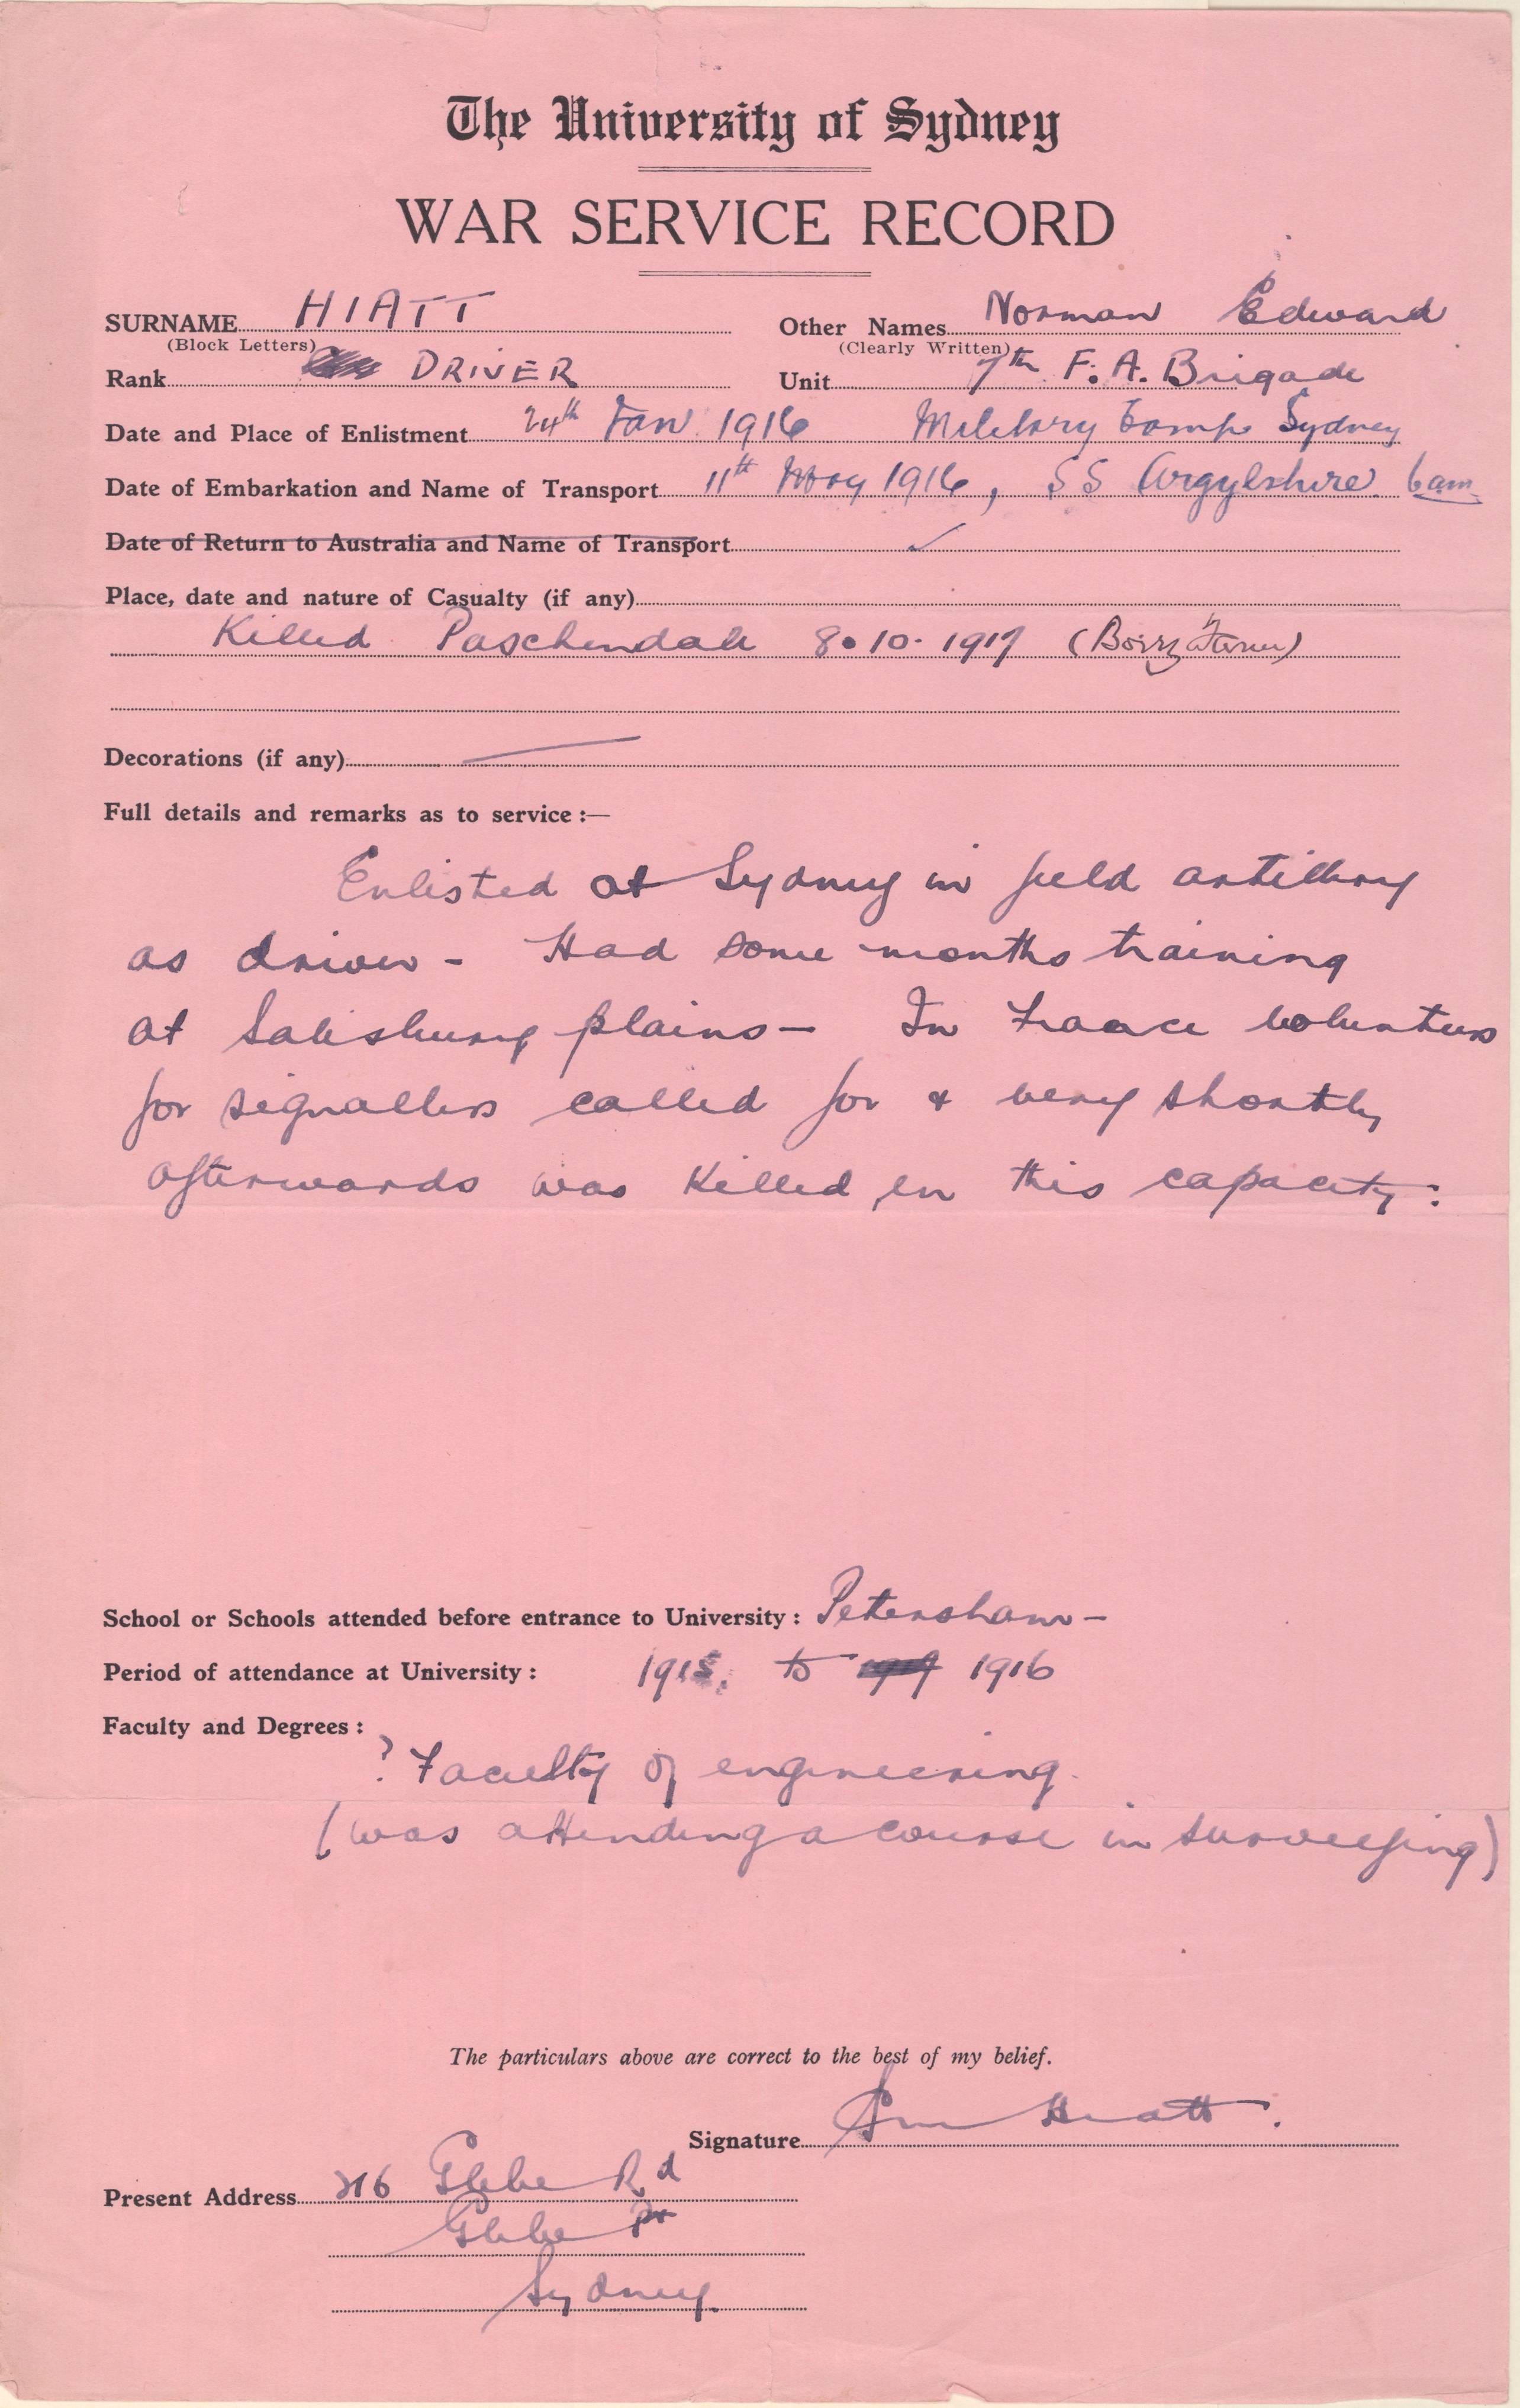 The University of Sydney
WAR SERVICE RECORD
SURNAME HIATT Other Names Norman Edward
(Block Letters) (Clearly Written)
Rank DRIVER Unit 7th F. A. Brigade
Date and Place of Enlistment 24th Jan 1916 Military Camp Sydney
Date of Embarkation and Name of Transport 11th May 1916, SS Argylshire 6am
Date of Return to Australia and Name of Transport
Place, date and nature of Casualty (if any)
Killed Paschendale 8.10.1917 (Borry Farm)
Decorations (if any)
Full details and remarks as to service :—
Enlisted at Sydney in field artillery
as driver - Had some months training
at Salisbury plains - In France volunteers
for signallers called for & very shortly
afterwards was killed in this capacity.
School or Schools attended before entrance to University : Petersham -
Period of attendance at University : 1915. to 1916
Faculty and Degrees :
? Faculty of engineering.
(was attending a course in surveying)
The particulars above are correct to the best of my belief.
Signature Hiatt.
Present Address Glebe Rd
Glebe Pt
Sydney.